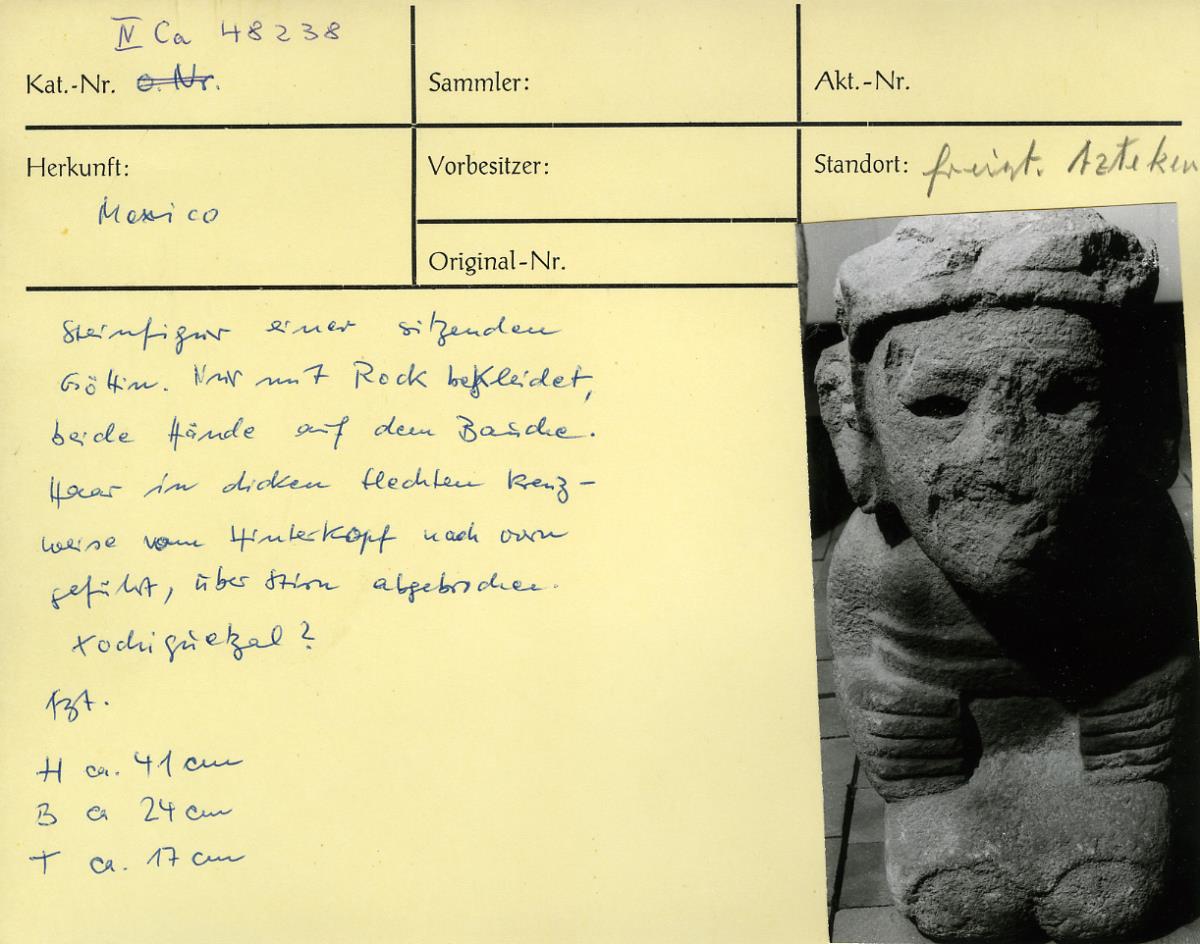 IV Ca 48238
Kat.-Nr. o. Nr.
Sammler:
Akt.-Nr.
Herkunft:
Mexico
Vorbesitzer:
Original-Nr.
Standort: freigt. Azteken
Steinfigur einer sitzenden
Göttin. Nur mit Rock bekleidet,
beide Hände auf dem Bauche.
Haar in dicken Flechten kreuz-
weise vom Hinterkopf nach vorn
geführt, über Stirn abgebrochen.
Xochiquetzal?
Azt.
H ca. 41 cm
B ca 24 cm
T ca. 17 cm